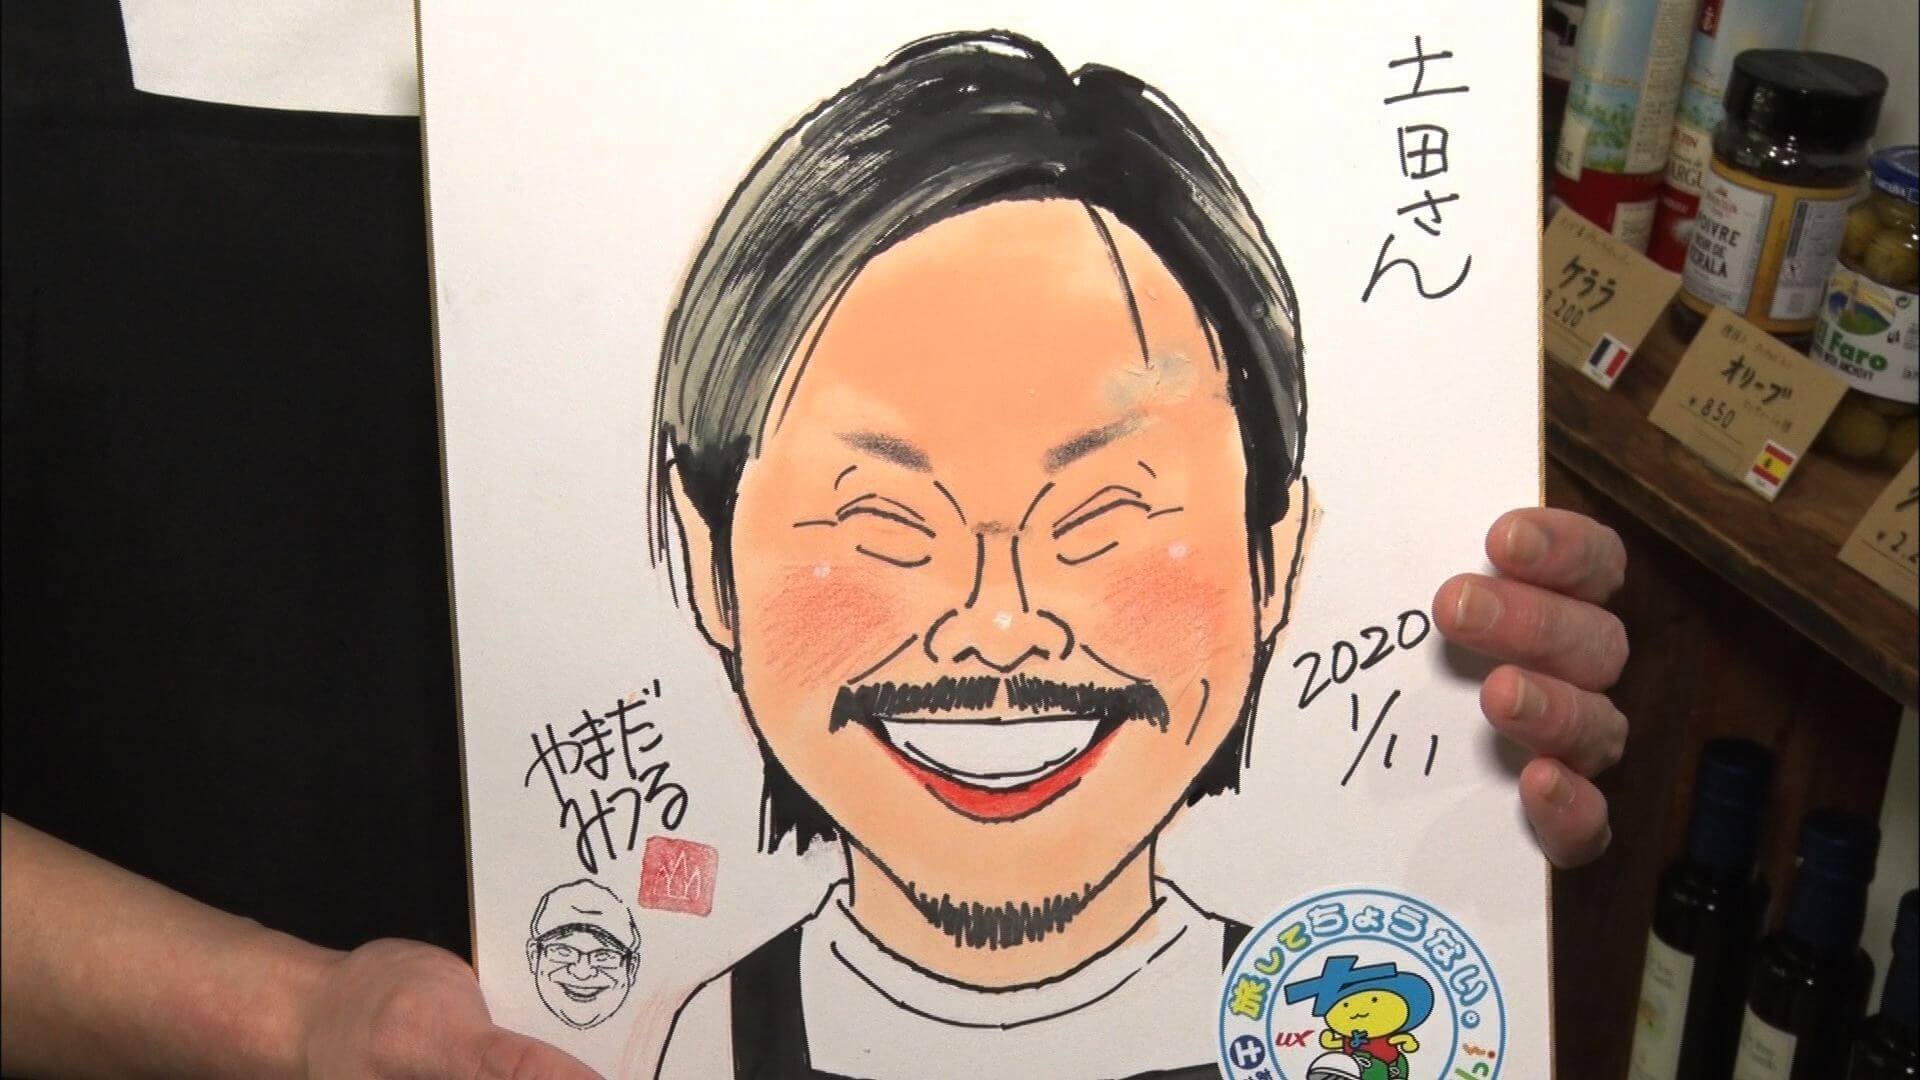 土田さん
2020
1/11
やまだ
みつる
旅してちょうない。
UX
ケララ
オリーブ
¥850
POIVRE
NOIR DE
KERALA
El Faro